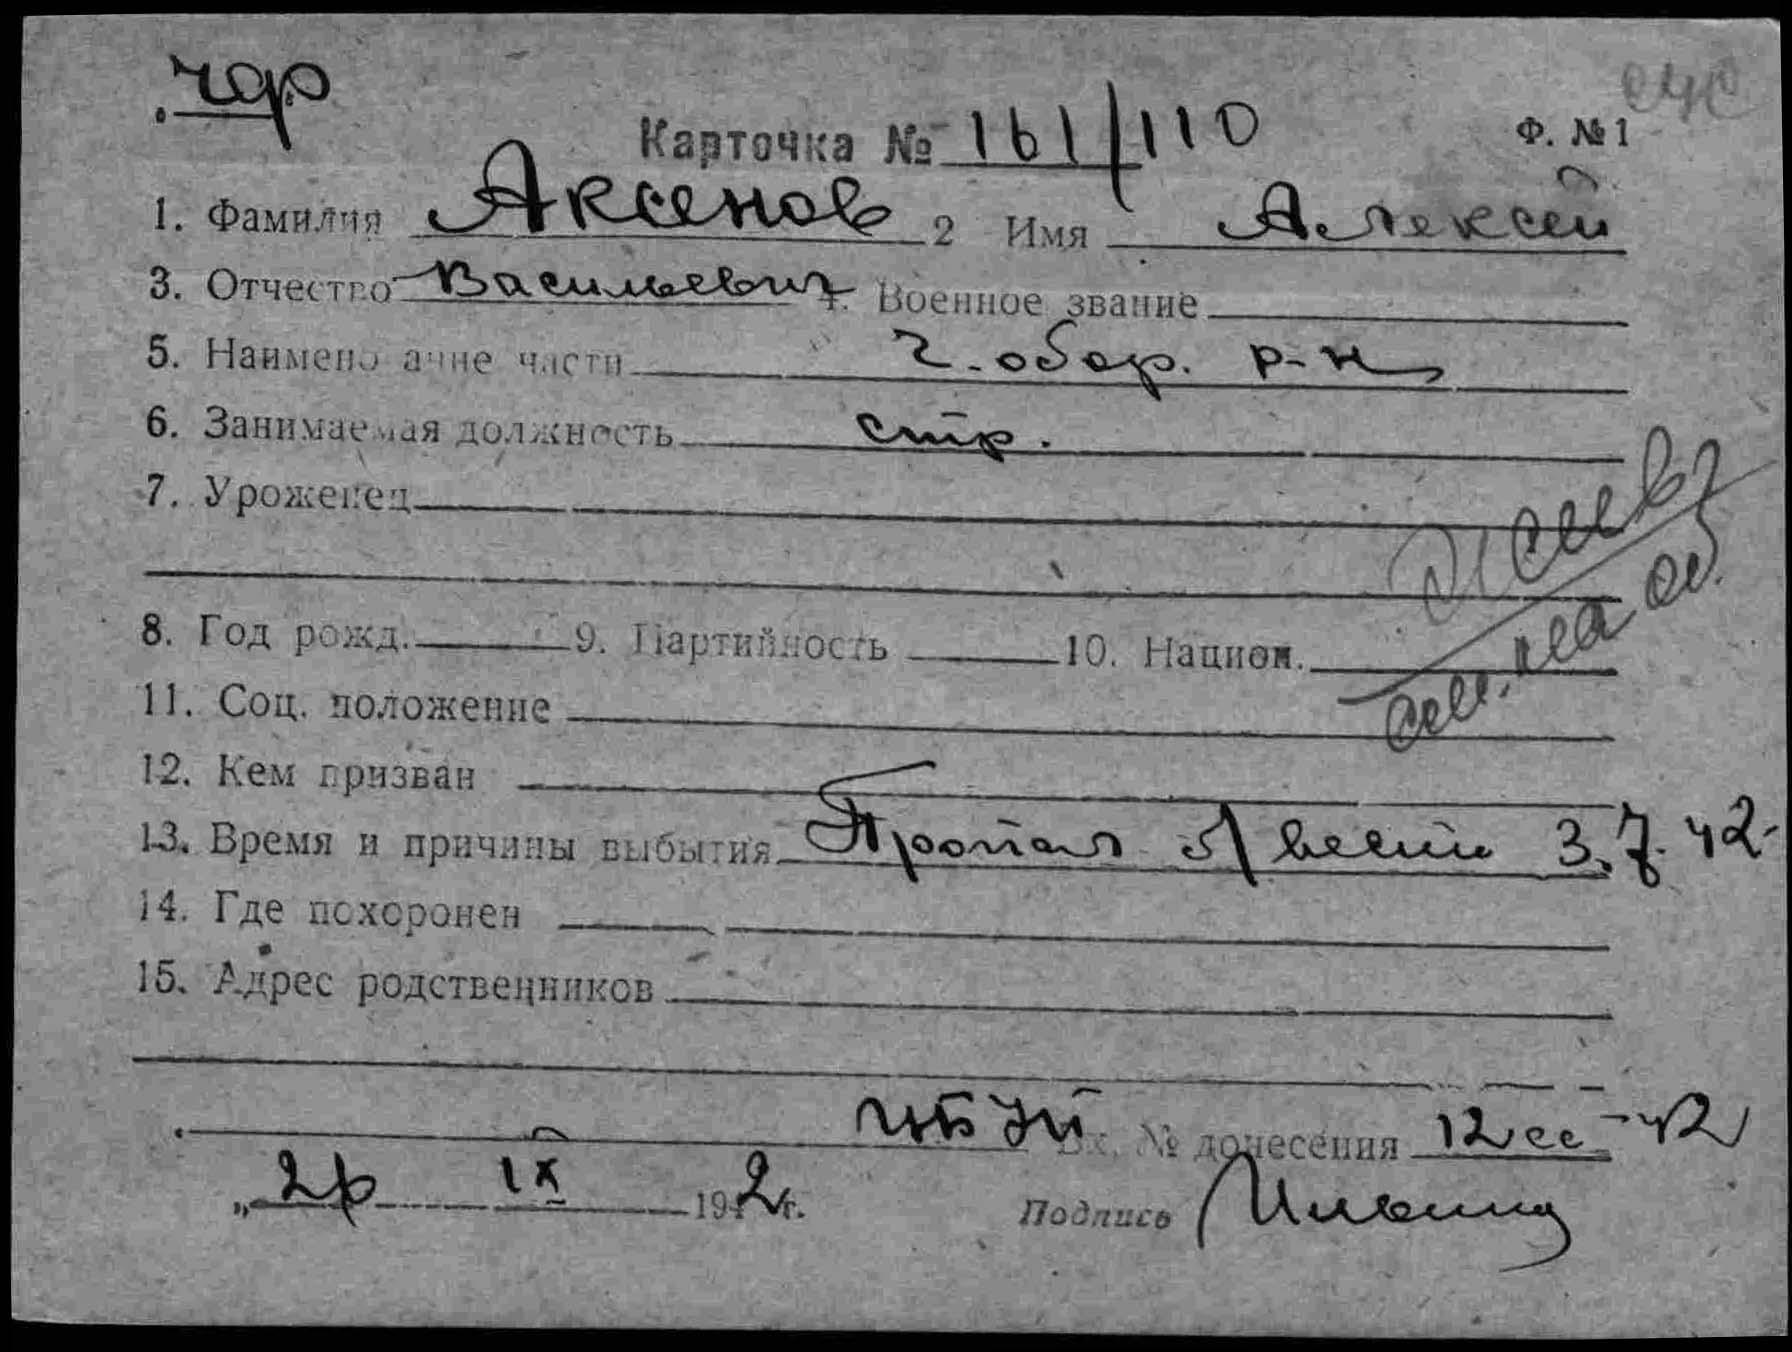 чф
Карточка № 161/110 Ф. №1
1. Фамилия Аксенов 2 Имя Алексей
3. Отчество Васильевич 4. Военное звание
5. Наименование части Ч. обор. р-н
6. Занимаемая должность стр.
7. Уроженец
8. Год рожд. 9. Партийность 10. Национ.
11. Соц. положение
12. Кем призван
13. Время и причины выбытия Пропал б/вести 3.7.42-
14. Где похоронен
15. Адрес родственников
Вх. № донесения 12сс-42
IX 1942г. Подпись